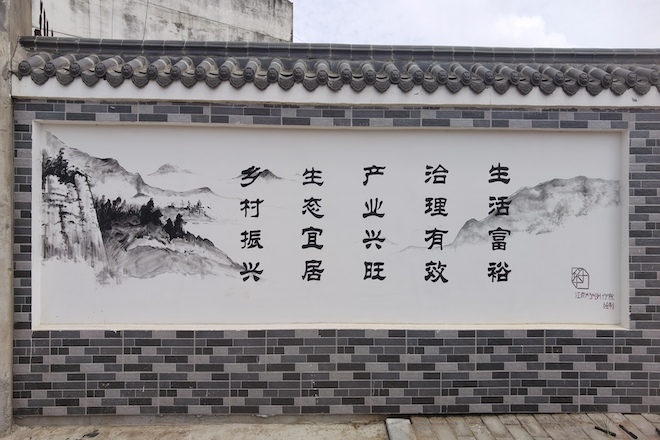 乡村振兴
生态宜居
产业兴旺
治理有效
生活富裕